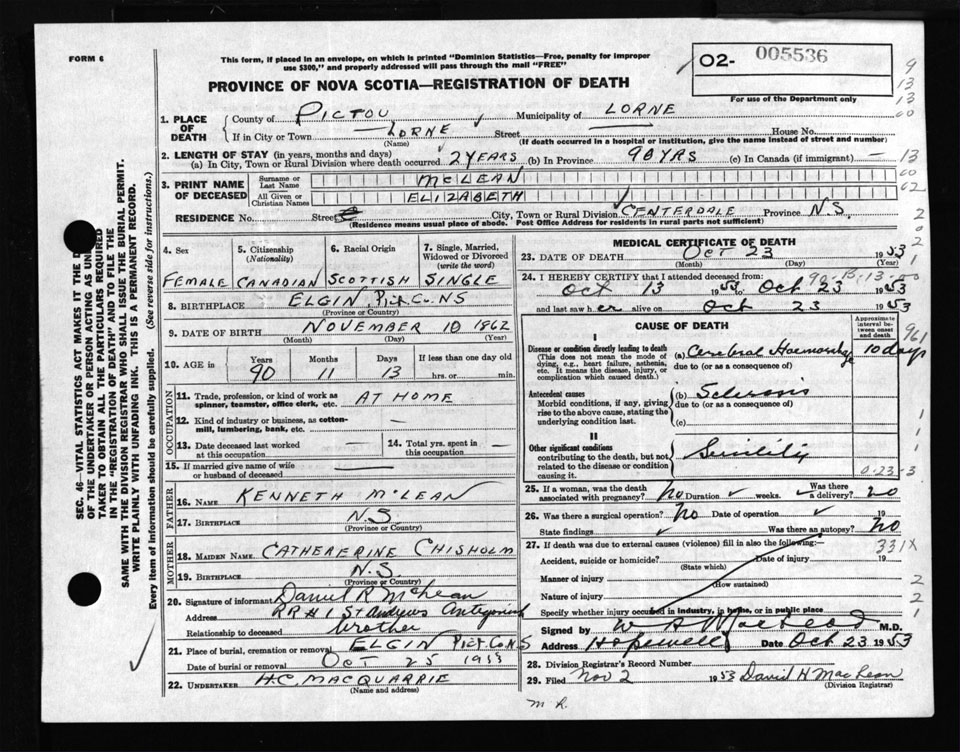 FORM 6
This form, if placed in an envelope, on which is printed "Dominion Statistics—Free, penalty for improper
use $300," and properly addressed will pass through the mail "FREE"
O2- 005536
For use of the Department only
PROVINCE OF NOVA SCOTIA—REGISTRATION OF DEATH
1. PLACE OF DEATH County of PICTOU Municipality of LORNE
If in City or Town LORNE Street House No.
(Name) (If death occurred in a hospital or institution, give the name instead of street and number)
2. LENGTH OF STAY (in years, months and days)
(a) In City, Town or Rural Division where death occurred 2 YEARS (b) In Province 90 YRS (c) In Canada (if immigrant) —
3. PRINT NAME OF DECEASED Surname or Last Name McLEAN
All Given or Christian Names ELIZABETH
RESIDENCE No. Street City, Town or Rural Division CENTERDALE Province N.S.
(Residence means usual place of abode. Post Office Address for residents in rural parts not sufficient)
4. Sex FEMALE
5. Citizenship (Nationality) CANADIAN
6. Racial Origin SCOTTISH
7. Single, Married, Widowed or Divorced (write the word) SINGLE
8. BIRTHPLACE ELGIN Pict. Co. NS
(Province or Country)
9. DATE OF BIRTH NOVEMBER 10 1862
(Month) (Day) (Year)
10. AGE in Years 90 Months 11 Days 13 If less than one day old hrs. or min.
OCCUPATION
11. Trade, profession, or kind of work as spinner, teamster, office clerk, etc. AT HOME
12. Kind of industry or business, as cotton-mill, lumbering, bank, etc. —
13. Date deceased last worked at this occupation —
14. Total yrs. spent in this occupation —
15. If married give name of wife or husband of deceased —
FATHER
16. NAME KENNETH McLEAN
17. BIRTHPLACE N.S.
(Province or Country)
MOTHER
18. MAIDEN NAME CATHERERINE CHISHOLM
19. BIRTHPLACE N.S
(Province or Country)
20. Signature of informant Daniel R McLean
Address RR#1 St Andrews Antigonish
Relationship to deceased brother
21. Place of burial, cremation or removal ELGIN Pict. Co. NS
Date of burial or removal OCT 25 1953
22. UNDERTAKER H.C. MACQUARRIE
(Name and address)
MEDICAL CERTIFICATE OF DEATH
23. DATE OF DEATH Oct 23 1953
(Month) (Day) (Year)
24. I HEREBY CERTIFY that I attended deceased from:
Oct 13 1953 to Oct 23 1953
and last saw her alive on Oct 23 1953
CAUSE OF DEATH
Approximate interval between onset and death
I
Disease or condition directly leading to death (a) Cerebral Haemorrhage 10 days
(This does not mean the mode of dying, e.g., heart failure, asthenia, etc. It means the disease, injury, or complication which caused death.)
due to (or as a consequence of)
Antecedent causes (b) Sclerosis
Morbid conditions, if any, giving rise to the above cause, stating the underlying condition last.
due to (or as a consequence of)
(c)
II
Other significant conditions contributing to the death, but not related to the disease or condition causing it. Senility
0-23-3
25. If a woman, was the death associated with pregnancy? No Duration weeks. Was there a delivery? no
26. Was there a surgical operation? No Date of operation 19
State findings Was there an autopsy? No
27. If death was due to external causes (violence) fill in also the following:— 331X
Accident, suicide or homicide? Date of injury 19
(State which)
Manner of injury
(How sustained)
Nature of injury
Specify whether injury occurred in industry, in home, or in public place
Signed by W A MacLeod M.D.
Address Hopewell Date Oct 23 1953
28. Division Registrar's Record Number
29. Filed Nov 2 1953 David H MacLean
(Division Registrar)
M R.
SEC. 46—VITAL STATISTICS ACT MAKES IT THE
OF THE UNDERTAKER OR PERSON ACTING AS
TAKER TO OBTAIN ALL THE PARTICULARS REQUIRED
IN THE "REGISTRATION OF DEATH" AND TO FILE THE
SAME WITH THE DIVISION REGISTRAR WHO SHALL ISSUE THE BURIAL PERMIT.
WRITE PLAINLY WITH UNFADING INK. THIS IS A PERMANENT RECORD.
Every item of information should be carefully supplied. (See reverse side for instructions.)